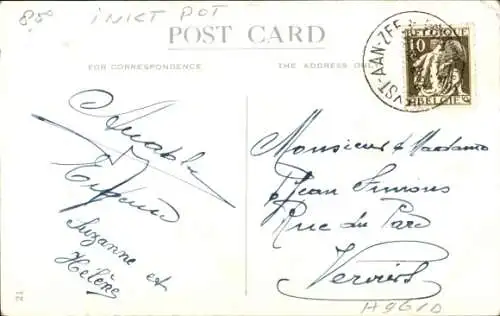 8,50 INKT POT
POST CARD
FOR CORRESPONDENCE
THE ADDRESS ONLY
BELGIQUE
10
BELGIË
ST-AAN-ZEE
Suzanne et
Hélène
Monsieur & Madame
Jean Simons
Rue du Parc
Verviers
21
H961D